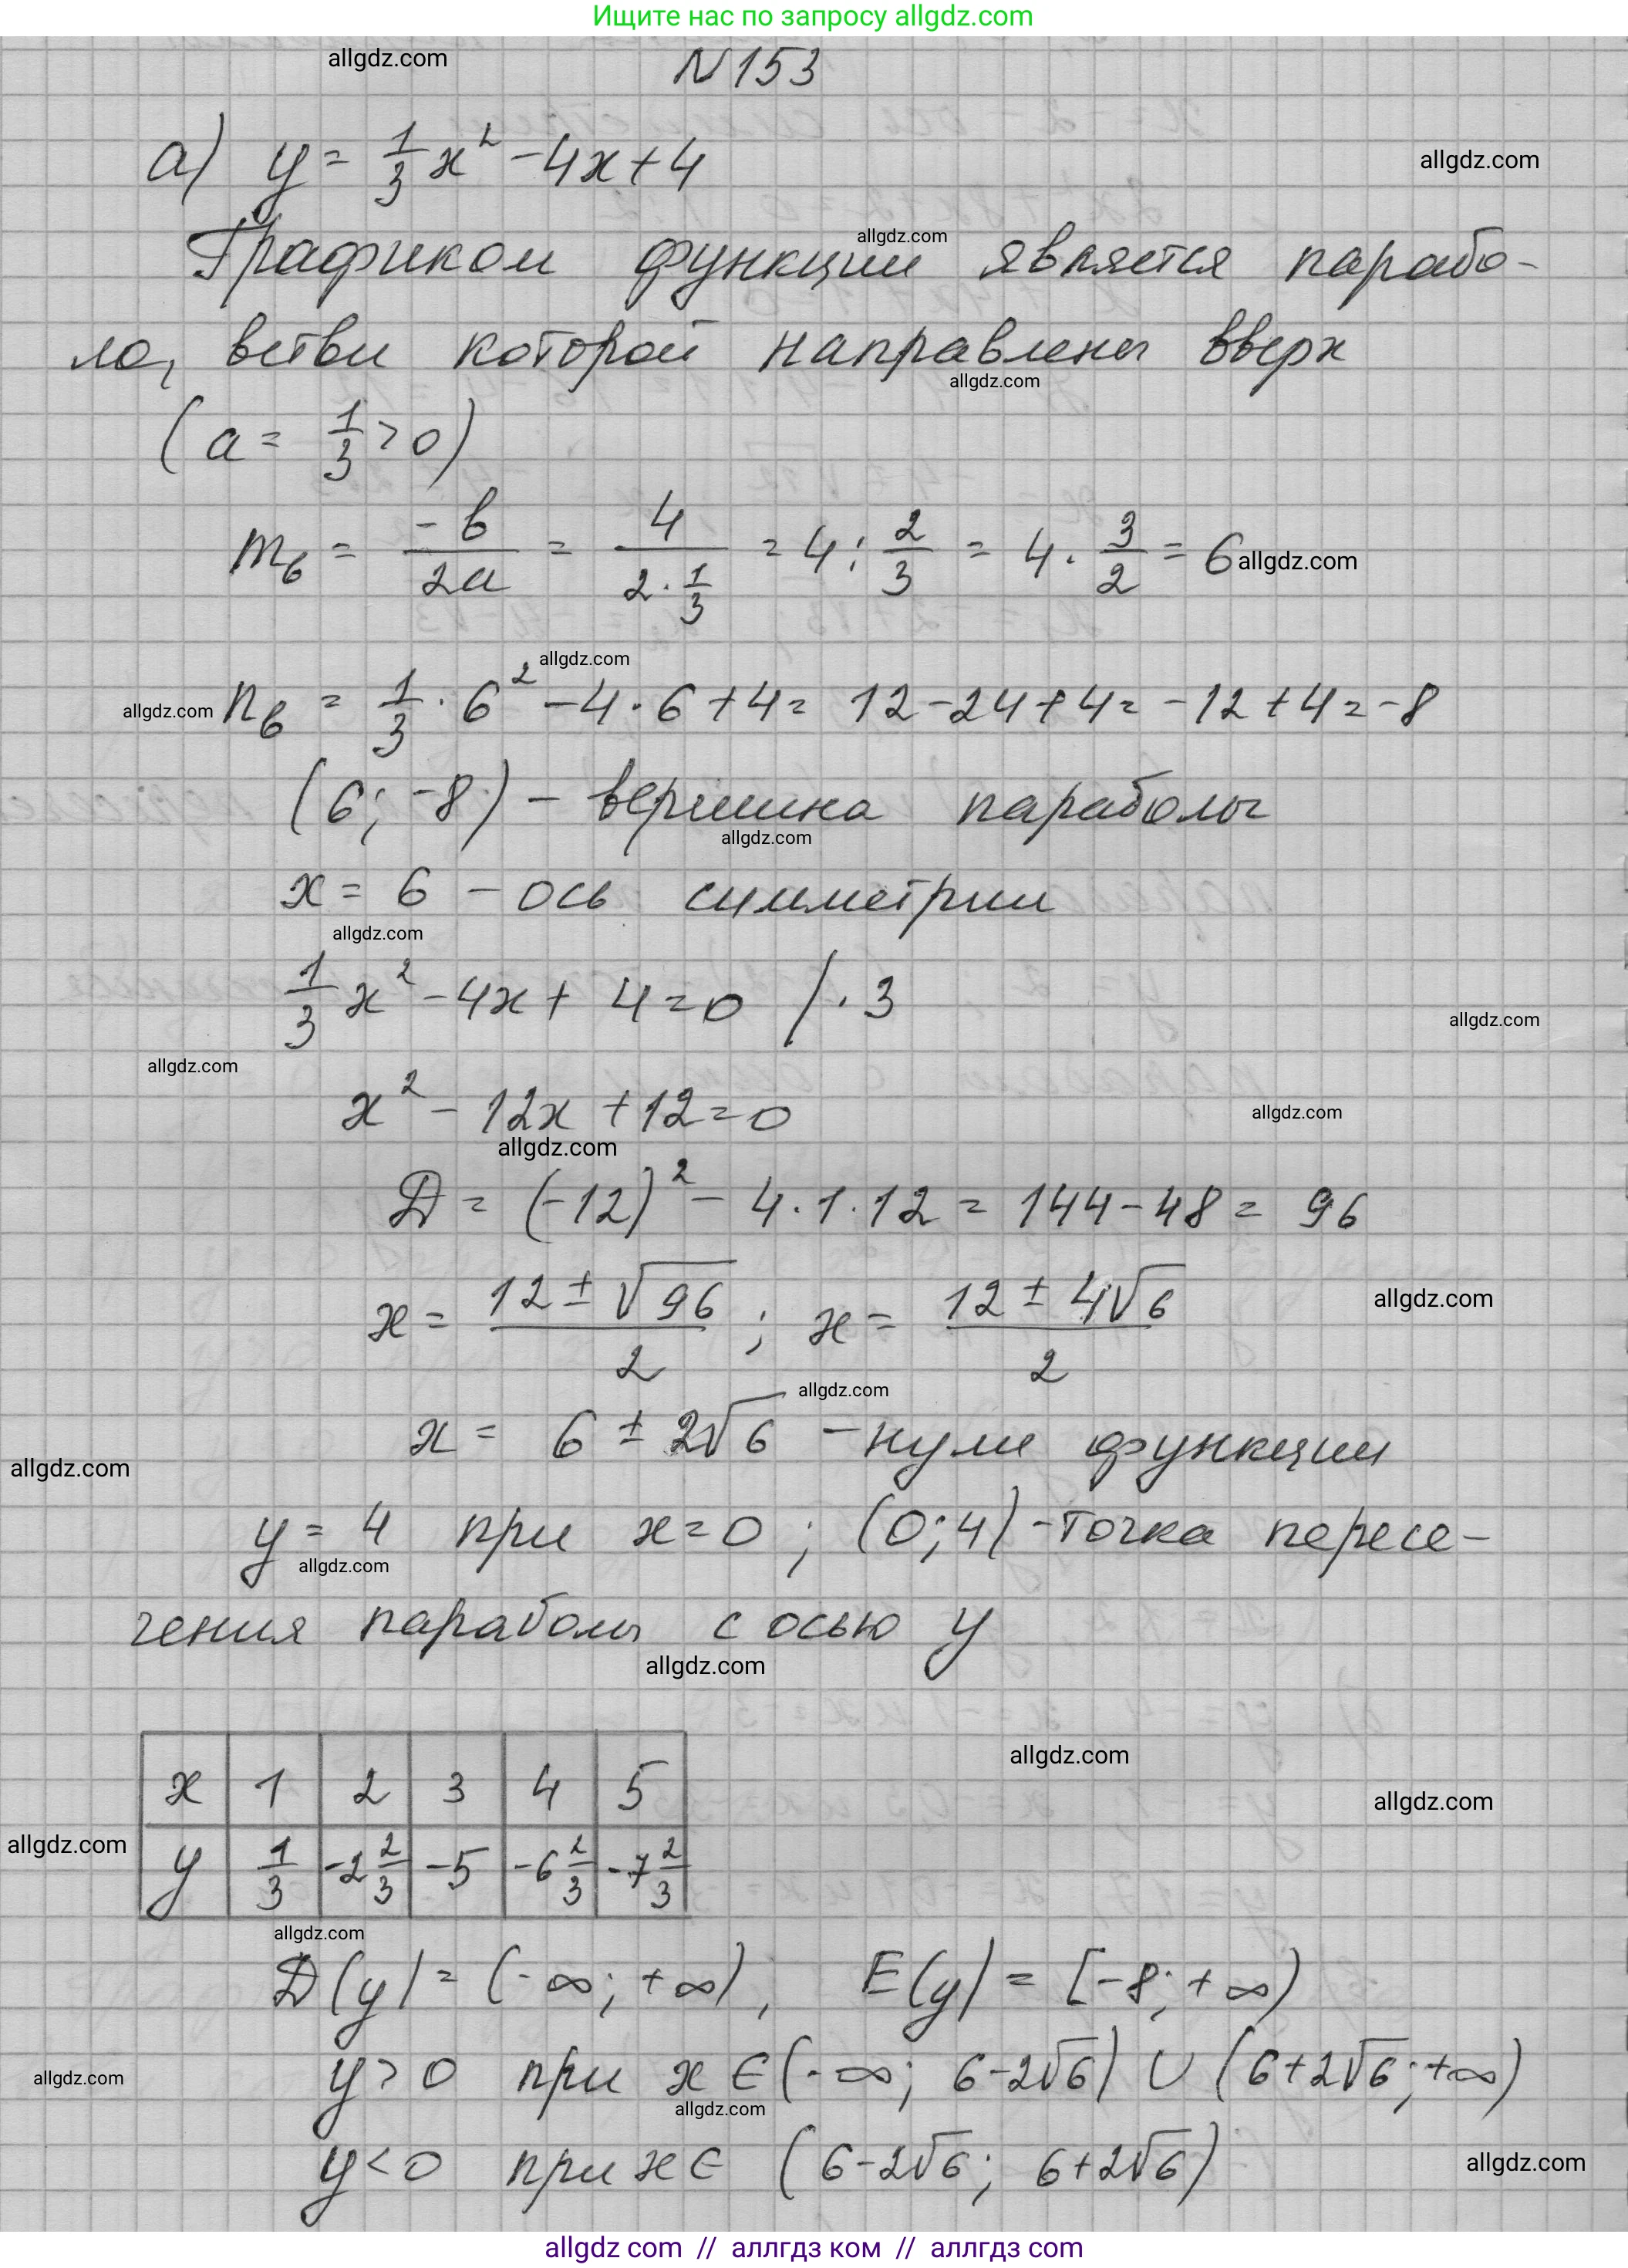 Ищите нас по запросу allgdz.com
allgdz.com
N 153
а) y = 1/3 x² - 4x + 4
allgdz.com
allgdz.com
Графиком функции является парабо-
ла, ветви которой направлены вверх
allgdz.com
(a = 1/3 > 0)
m_в = -b/2a = 4/(2 · 1/3) = 4 : 2/3 = 4 · 3/2 = 6
allgdz.com
allgdz.com
allgdz.com
n_в = 1/3 · 6² - 4 · 6 + 4 = 12 - 24 + 4 = -12 + 4 = -8
(6; -8) - вершина параболы
allgdz.com
x = 6 - ось симметрии
allgdz.com
1/3 x² - 4x + 4 = 0 / · 3
allgdz.com
allgdz.com
x² - 12x + 12 = 0
allgdz.com
allgdz.com
Д = (-12)² - 4 · 1 · 12 = 144 - 48 = 96
x = (12 ± √96)/2 ; x = (12 ± 4√6)/2
allgdz.com
allgdz.com
x = 6 ± 2√6 - нули функции
allgdz.com
y = 4 при x = 0 ; (0; 4) - точка пересе-
allgdz.com
чения параболы с осью y
allgdz.com
allgdz.com
x 1 2 3 4 5
allgdz.com
allgdz.com
y 1/3 -2 2/3 -5 -6 2/3 -7 2/3
allgdz.com
Д(y) = (-∞; +∞), E(y) = [-8; +∞)
y > 0 при x ∈ (-∞; 6-2√6) ∪ (6+2√6; +∞)
allgdz.com
allgdz.com
y < 0 при x ∈ (6-2√6; 6+2√6)
allgdz.com
allgdz com // аллгдз ком // аллгдз.com